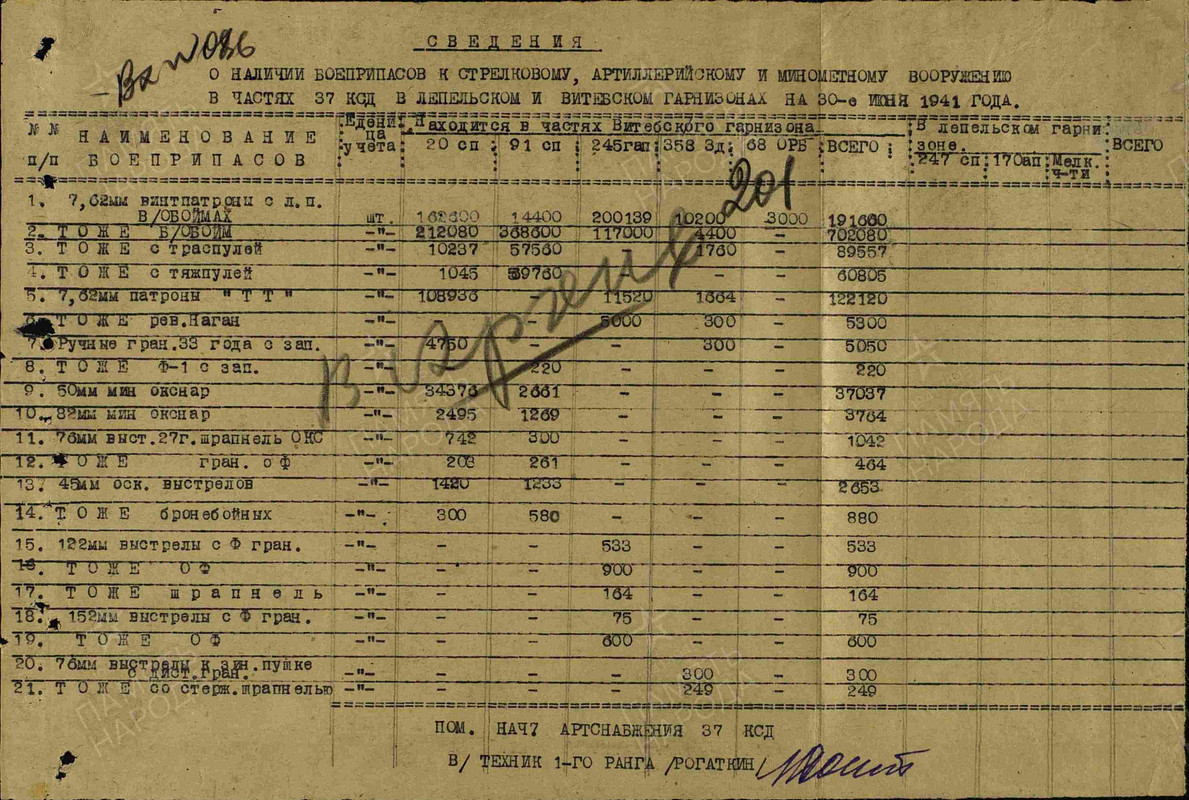 Вх № 086
СВЕДЕНИЯ
О НАЛИЧИИ БОЕПРИПАСОВ К СТРЕЛКОВОМУ, АРТИЛЛЕРИЙСКОМУ И МИНОМЕТНОМУ ВООРУЖЕНИЮ
В ЧАСТЯХ 37 КСД В ЛЕПЕЛЬСКОМ И ВИТЕБСКОМ ГАРНИЗОНАХ НА 30-е ИЮНЯ 1941 ГОДА.
№№ п/п НАИМЕНОВАНИЕ БОЕПРИПАСОВ Едени ца учета Находится в частях Витебского гарнизона В лепельском гарни зоне. ВСЕГО
20 сп 91 сп 245гап 358 Зд 68 ОРБ ВСЕГО 247 сп 170ап Мелк. ч-ти
1. 7,62мм винтпатроны с л.п.
В/ОБОЙМАХ шт. 14400 200139 10200 3000 191660
2. ТОЖЕ Б/ОБОЙМ -"- 212080 368600 117000 4400 - 702080
3. ТОЖЕ с траспулей -"- 10237 57560 - 1760 - 89557
4. ТОЖЕ с тяжпулей -"- 1045 59760 - - 60805
5. 7,62мм патроны "ТТ" -"- 108936 11520 1664 - 122120
6. ТОЖЕ рев.Наган -"- - - 5000 300 - 5300
7. Ручные гран.33 года с зап. -"- 4750 - - 300 - 5050
8. ТОЖЕ Ф-1 с зап. -"- 220 - - - 220
9. 50мм мин окснар -"- 34376 2661 - - - 37037
10. 82мм мин окснар -"- 2495 1269 - - - 3764
11. 76мм выст.27г.шрапнель ОКС -"- 742 300 - - - 1042
12. ТОЖЕ гран. оФ -"- 203 261 - - - 464
13. 45мм оск. выстрелов -"- 1420 1233 - - - 2653
14. ТОЖЕ бронебойных -"- 300 580 - - - 880
15. 122мм выстрелы с Ф гран. -"- - - 533 - - 533
16. ТОЖЕ ОФ -"- - - 900 - - 900
17. ТОЖЕ шрапнель -"- - - 164 - - 164
18. 152мм выстрелы с Ф гран. -"- - - 75 - - 75
19. ТОЖЕ ОФ -"- - - 600 - - 600
20. 76мм выстрелы к зин.пушке
с дист.гран. -"- - - - 300 - 300
21. ТОЖЕ со стерж.шрапнелью -"- - - - 249 - 249
201
ПОМ. НАЧ7 АРТСНАБЖЕНИЯ 37 КСД
В/ ТЕХНИК 1-ГО РАНГА /РОГАТКИН/
ПАМЯТЬ НАРОДА